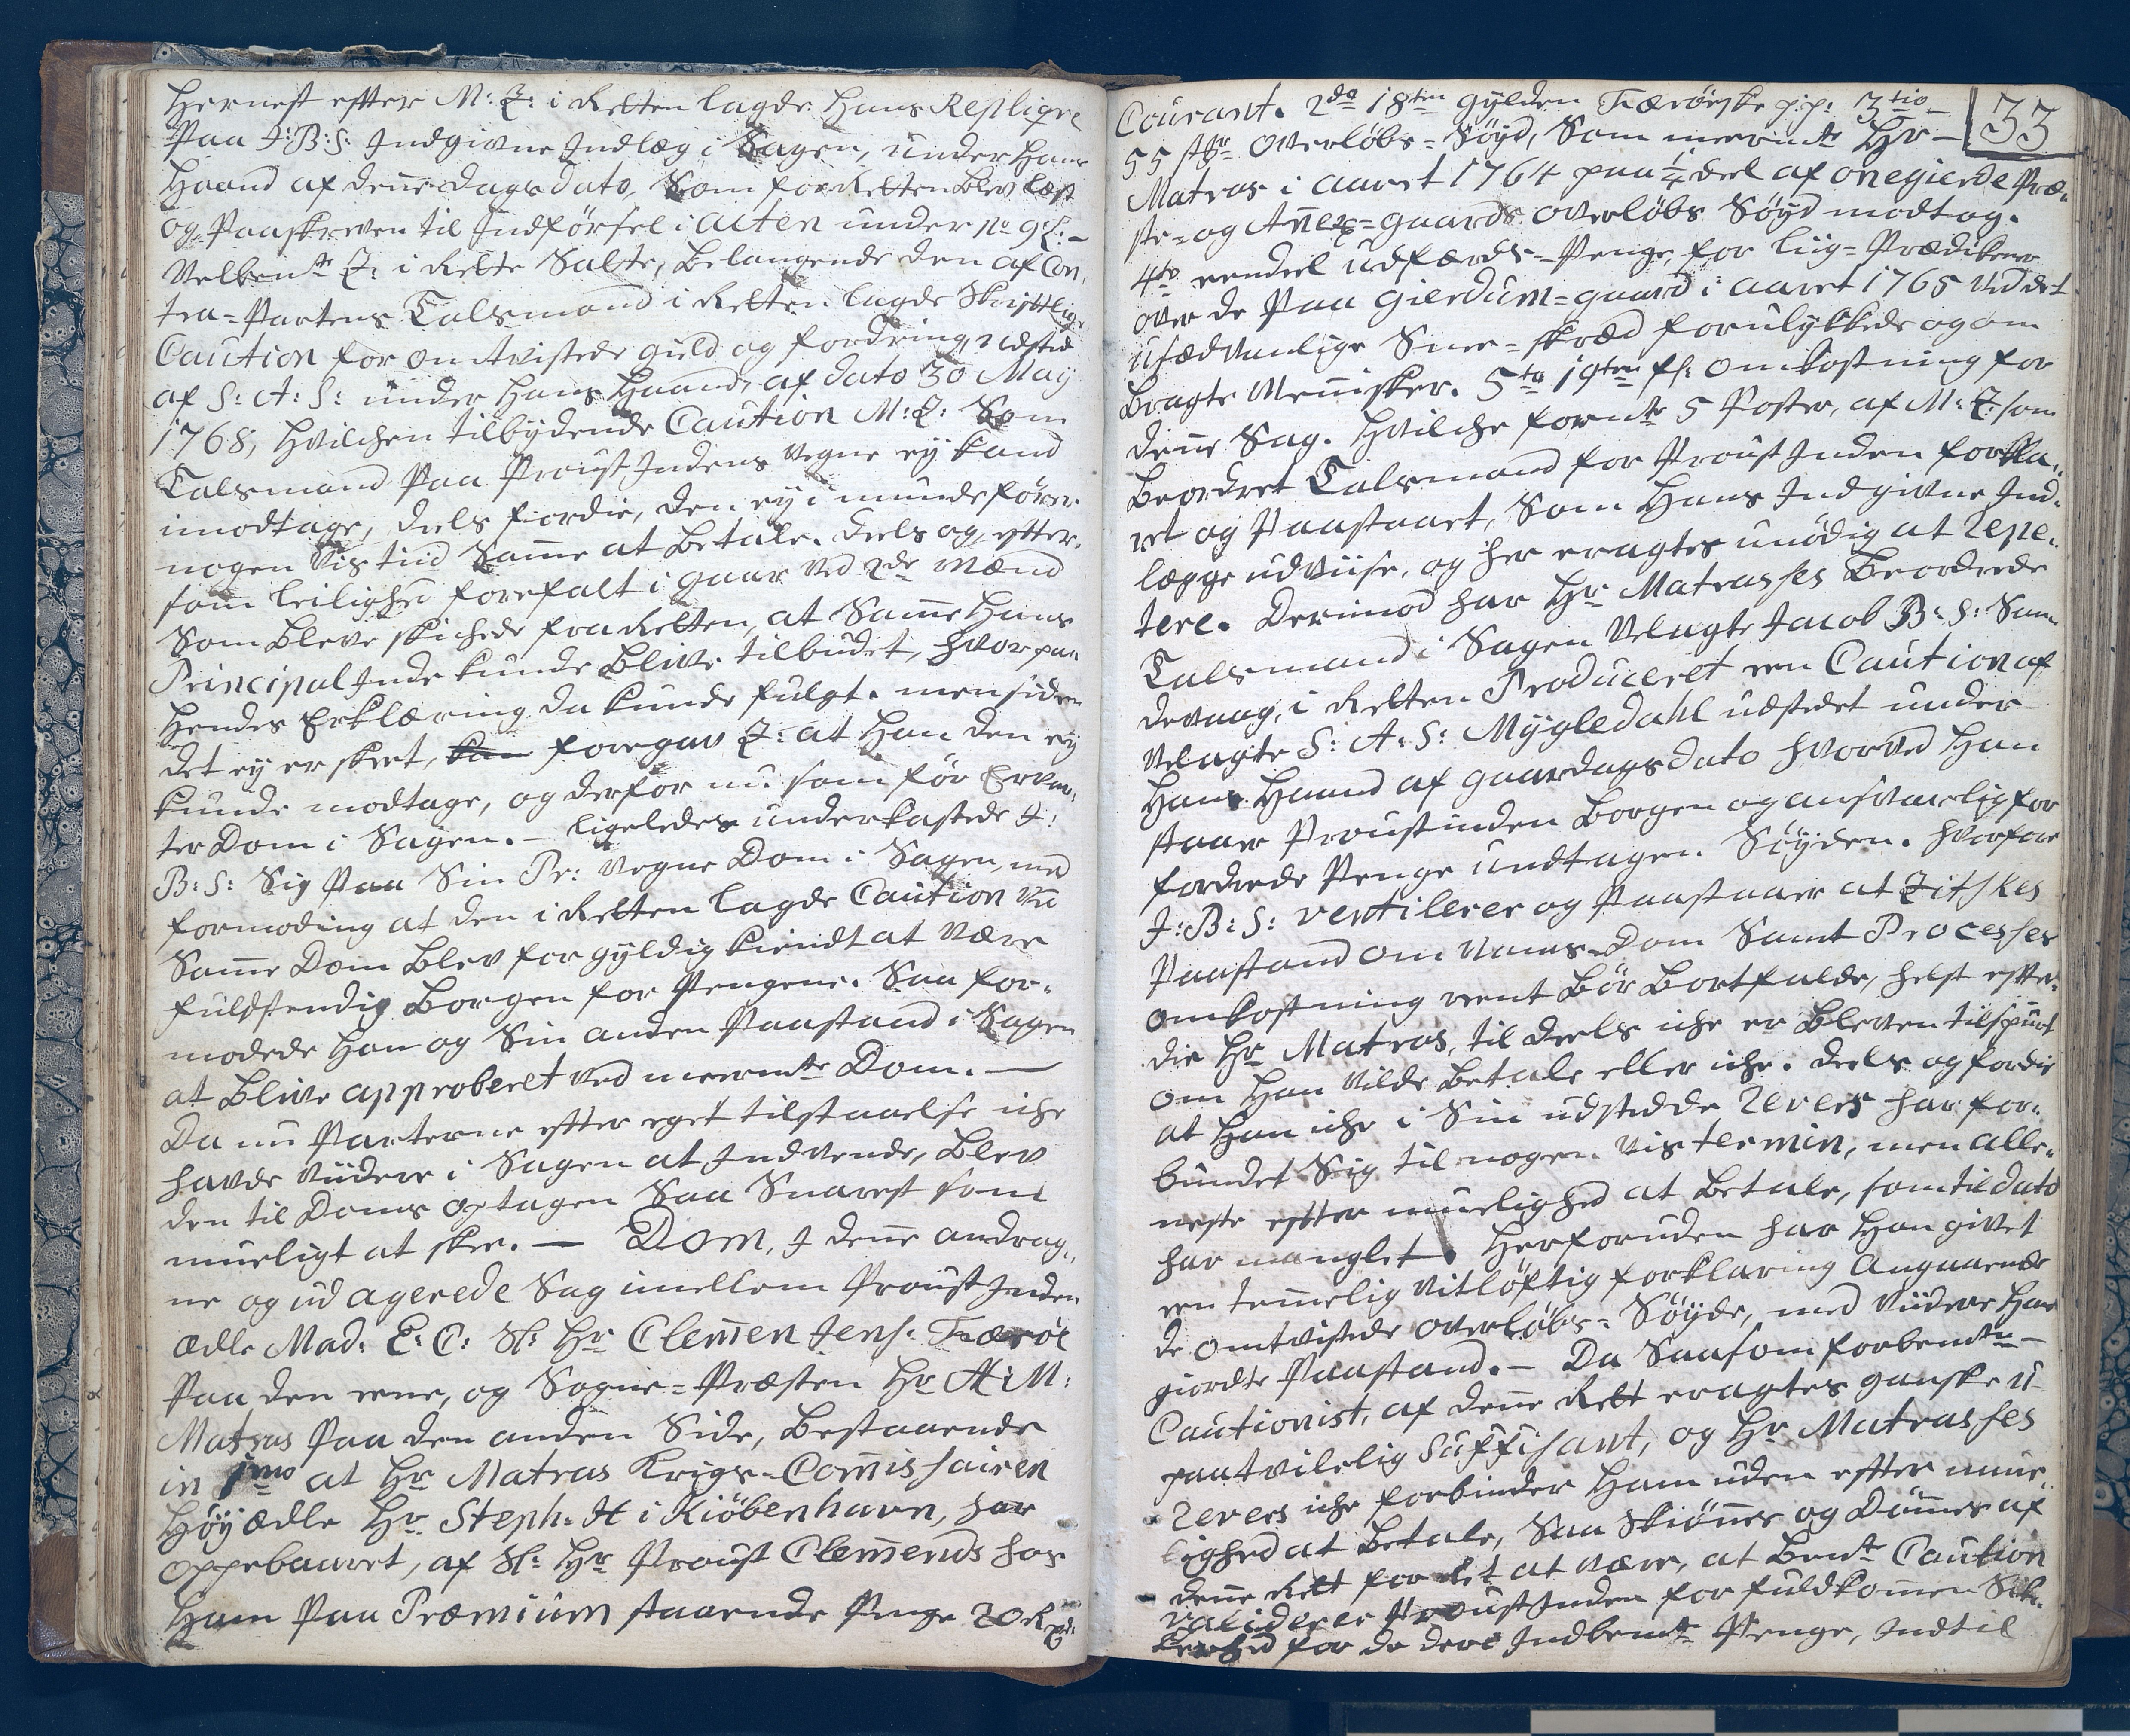 Hernest efter M: Z: i Retten lagde Hans Replique
Paa J: B: S: Indgivne Indlæg i Sagen, under Hans
Haand af denne Dags dato, Som for Retten blev læst
og Paaskreven til Indførsel i Acten under No 9 L: –
Velbemte Z: i Rette Satte, belangende den af Con-
tra-Partens Talsmand i Retten lagde Skriftlig
Caution for omtvistede gield og fordring udsted
af S: A: S: under Hans Haand, af dato 30 May
1768, Hvilchen tilbydende Caution M: Z: Som
Talsmand Paa Proust Indens Vegne ey kand
imodtage, deels fordie, den ey i munde fører
nogen Vis tiid Samme at betale. deels og, efter-
som leilighed forefalt i gaar ved 2de Mænd
Som bleve skichede fra Retten, at Samme Hans
Principal Inde kunde blive tilbudet, hvorpaa
Hendes Erklæring da kunde fulgt. men siden
det ey er skeet, foregav Z: at Han den ey
kunde modtage, og derfor nu som før Erven-
ter Dom i Sagen. – ligeledes underkastede J:
B: S: Sig Paa Sin Pr: Vegne Dom i Sagen, med
formoding at den i Retten lagde Caution ved
Samme Dom blev for gyldig kiendt at være
fuldstendig borgen for Pengene. Saa for-
modede Han og Sin anden Paastand i Sagen
at blive approberet ved meermte Dom. –
Da nu Parterne efter eget tilstaaelse iche
havde viidere i Sagen at Indvende, blev
den til Doms optagen Saa Snarest som
mueligt at skee. – Dom, I denne andrag-
ne og ud agerede Sag imellem Proust Inden
ædle Mad: E: C: Sl: Hr Clemen Jens: Færøe
Paa den eene, og Sogne-Præsten Hr H: M:
Matras Paa den anden Side, bestaaende
in 1mo at Hr Matras Krigs-Commissairen
Høyædle Hr Steph: H i Kiöbenhavn, har
oppebaaret, af Sl: Hr Proust Clemends hos
Ham Paa Præmium staaende Penge 20 Rd
33
Courant. 2do 18ten gylden Færøeske p:p: 3tio –
55 st: Overløbs-Søyd, Som meermte Hr –
Matras i aaret 1764 paa 1/4 deel af onegierde Præ-
ste- og Annex-gaards Overløbs Søyd modtog.
4to eendeel udfærds-Penge, for liig-Prædikener
over de Paa Gierdum-gaard i aaret 1765 ved det
usædvanlige Snee-skred forulykkede og om
bragte Mennisker. 5to 19ten omkostning for
denne Sag. Hvilche formte 5 Poster, af M: Z: som
beordret Talsmand for Proust Inden forkla-
ret og Paastaaet, Som Hans Indgivne Ind-
lægge udviise, og her eragtes unødig at repe-
tere. Derimod har Hr Matrasses beordrede
Talsmand i Sagen Velagte Jacob B: S: San-
devaag, i Retten Produceret een Caution af
Velagte S: A: S: Mygledahl udstedet under
Hans Haand af gaardags dato hvorved Han
staaer Proustinden borgen og ansvarlig for
fordrede Penge undtagen Søyden. Hvorfore
J: B: S: ventilerer og Paastaaer at Zitskes
Paastand om Nams-Dom Samt Processes
omkostning reent bør bortfalde, helst efter-
die Hr Matras, til deels iche er bleven tilspurt
om Han vilde betale eller iche. deels og fordie
at Han iche i Sin udstedde revers har for-
bundet Sig til nogen Vis termin, men alle-
neste efter muelighed at betale, som til dato
har manglet. Herforuden har Han givet
een temmelig vitløftig forklaring angaaende
de omtvistede Overløbs-Søyde, med viidere Hans
giordte Paastand. – Da Saasom forbemte –
Cautionist, af denne Rett eragtes ganske u-
paatvilelig Suffisant, og Hr Matrasses
revers iche forbinder Ham uden efter mue-
lighed at betale, Saa Skiønnes og Dømmes af
denne Rett for ret at være, at bemte Caution
validerer Proust Inden for fuldkommen Sik-
kerhed for de deri Indbemte Penge, Indtil